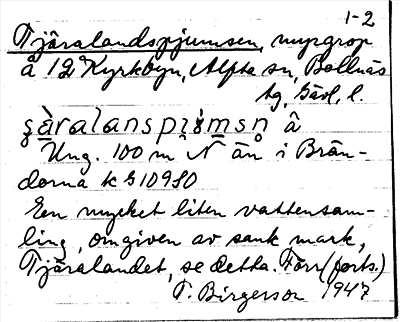 1-2
Tjäralandspjumsen, myrgrop
å 12 Kyrkbyn, Alfta sn, Bollnäs
tg, Gävl. l.
å
Ung. 100 m N ån i Brän-
dorna k G 10980
En mycket liten vattensam-
ling, omgiven av sank mark,
Tjäralandet, se detta. Förr (forts.)
T. Birgerson 1947